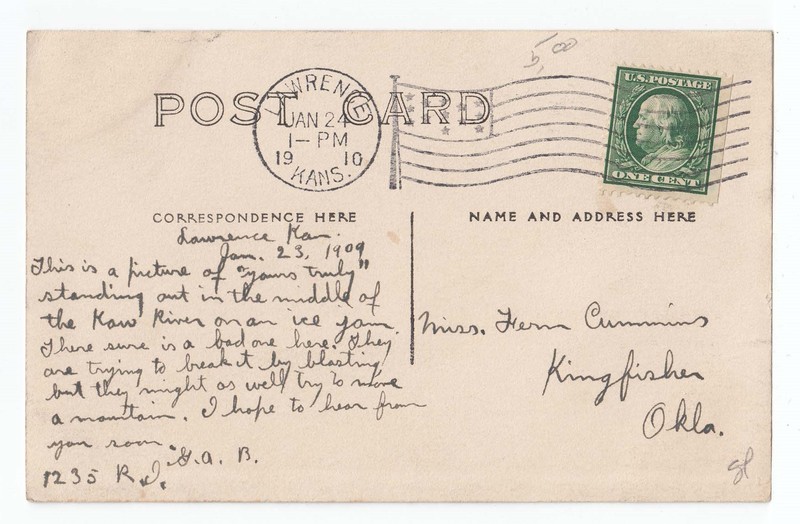 5.00
U.S. POSTAGE
ONE CENT
LAWRENCE
JAN 24
1-PM
19 10
KANS.
POST CARD
CORRESPONDENCE HERE
NAME AND ADDRESS HERE
Lawrence Kan.
Jan. 23, 1909
This is a picture of "yours truly"
standing out in the middle of
the Kaw River on an ice jam.
There sure is a bad one here. They
are trying to break it by blasting,
but they might as well try to move
a mountain. I hope to hear from
you soon.
G. A. B.
1235 R. I.
Miss. Fern Cummins
Kingfisher
Okla.